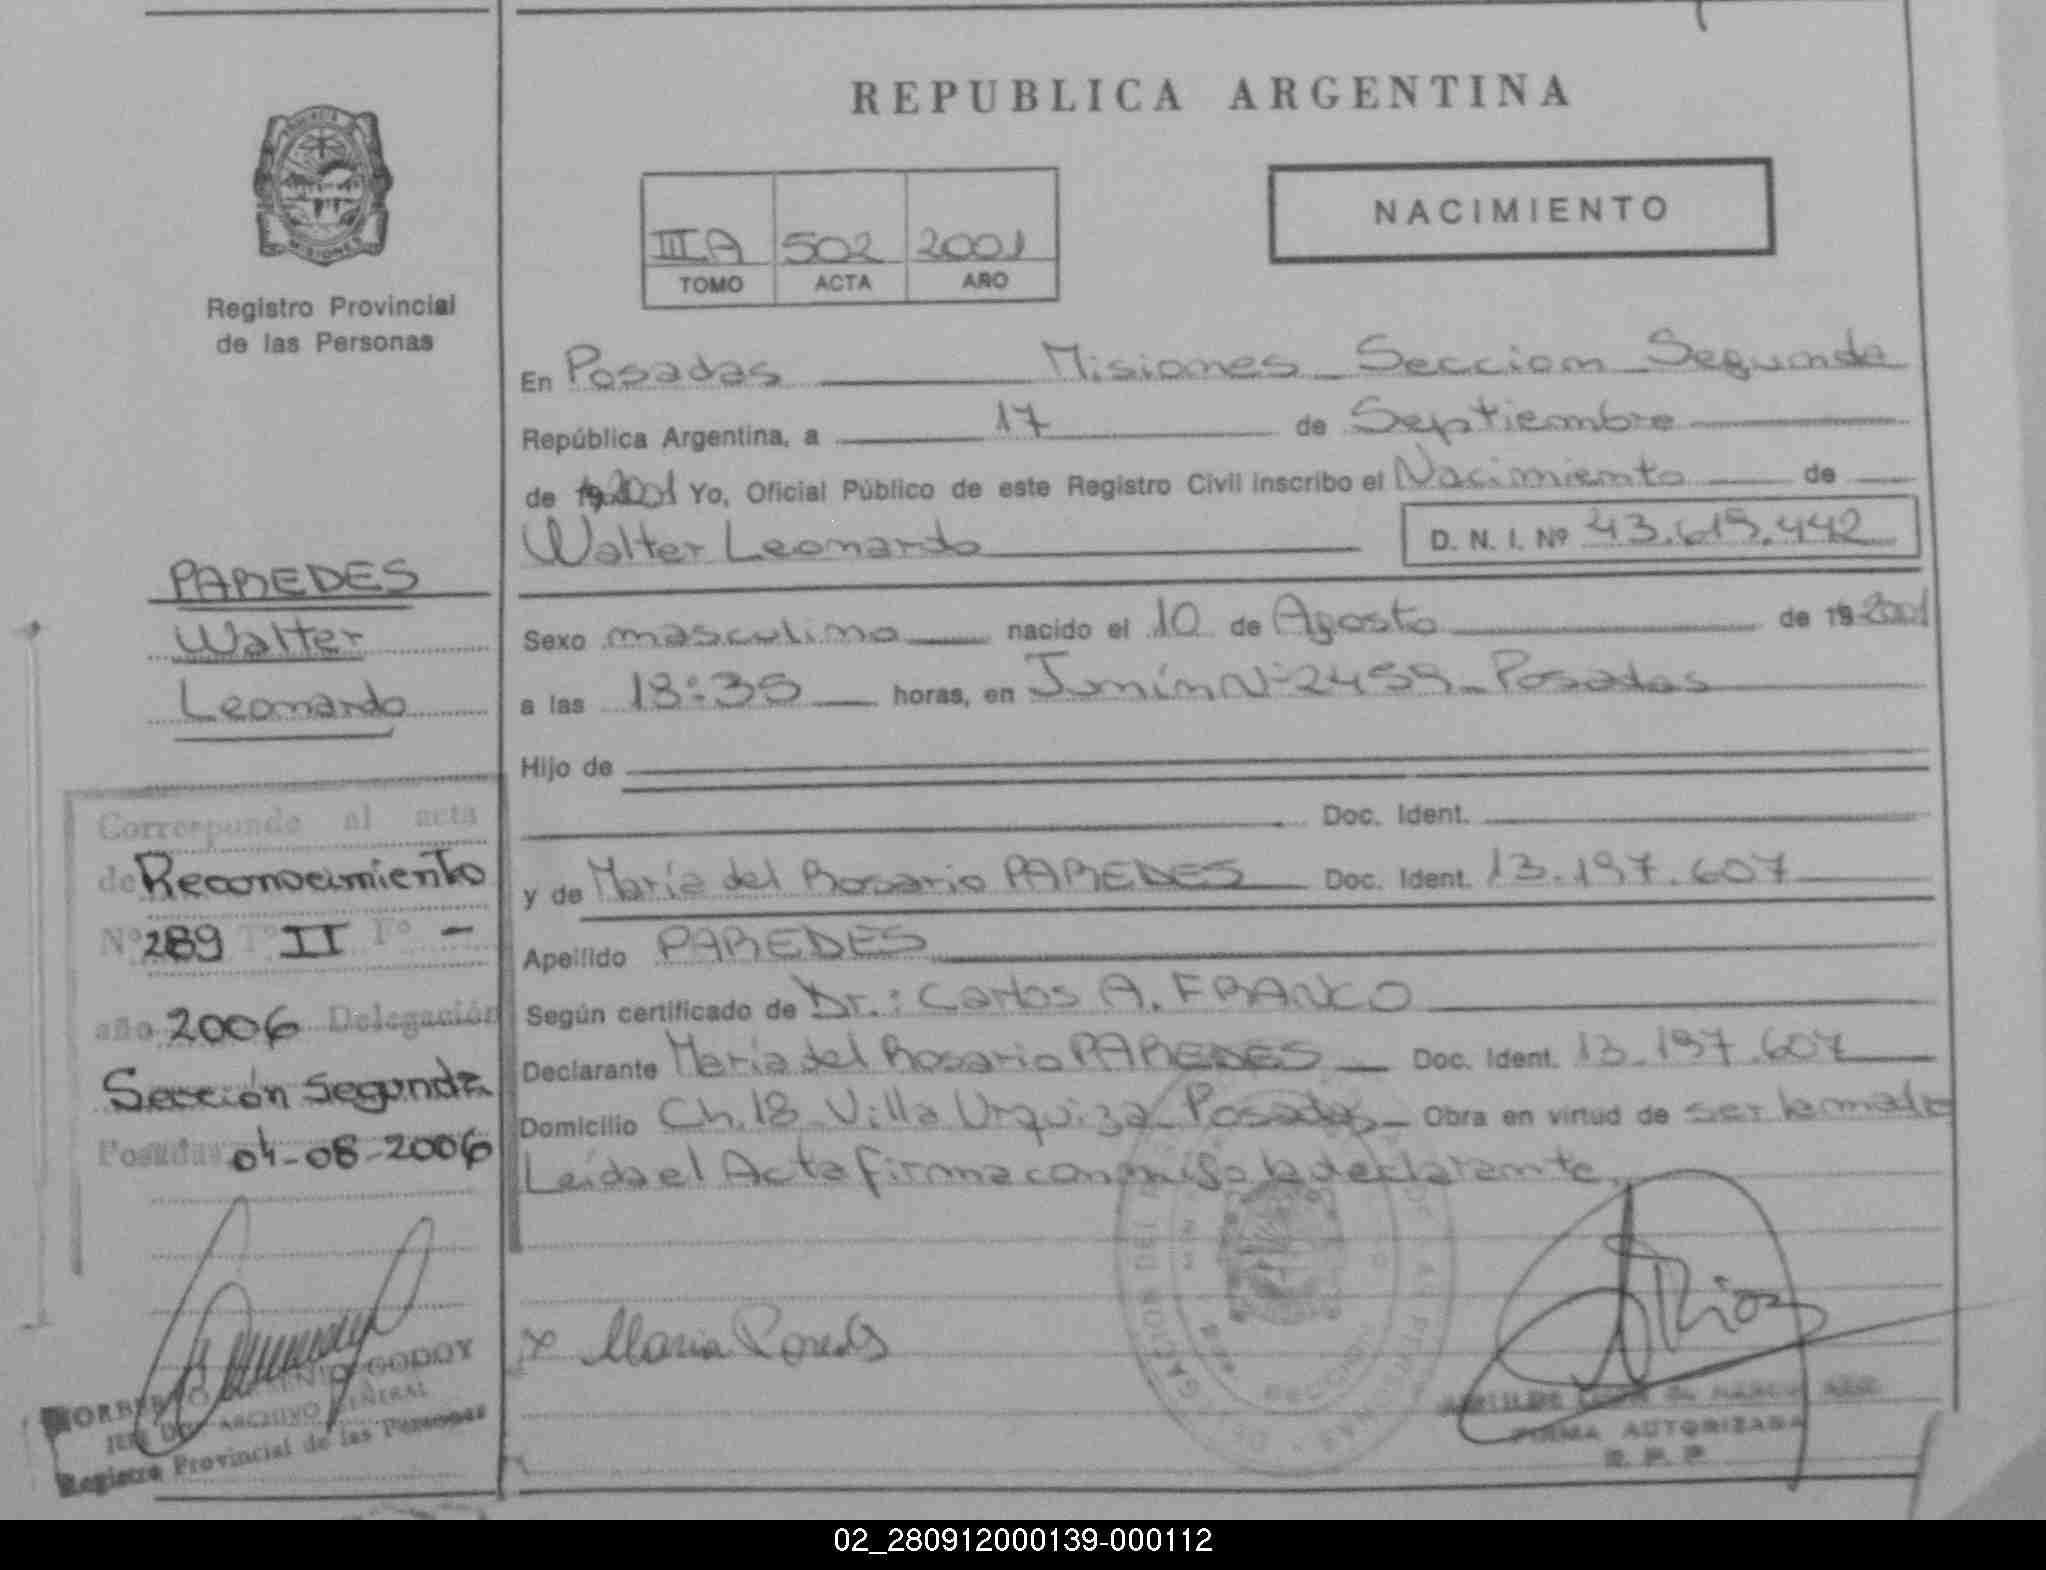 REPUBLICA ARGENTINA
NACIMIENTO
IIIA 502 2001
TOMO ACTA AÑO
Registro Provincial
de las Personas
En Posadas Misiones Seccion Segunda
República Argentina, a 17 de Septiembre
de 19 2001 Yo, Oficial Público de este Registro Civil inscribo el Nacimiento de
Walter Leonardo D. N. I. Nº 43.619.442
PAREDES
Walter
Leonardo
Sexo masculino nacido el 10 de Agosto de 19 2001
a las 18:35 horas, en Junín Nº 2459 Posadas
Hijo de
Doc. Ident.
y de María del Rosario PAREDES Doc. Ident. 13.197.607
Apellido PAREDES
Según certificado de Dr.: Carlos A. FRANCO
Declarante María del Rosario PAREDES Doc. Ident. 13.197.607
Domicilio Ch. 18 Villa Urquiza Posadas Obra en virtud de ser la madre
Leída el Acta firma conmigo la declarante.
Corresponde al acta
de Reconocimiento
Nº 289 Tº II Fº -
año 2006 Delegación
Sección Segunda
Posadas 04-08-2006
x Maria Paredes
Rios
GODOY
ARCHIVO GENERAL
Registro Provincial de las Personas
FIRMA AUTORIZADA
R. P. P.
02_280912000139-000112